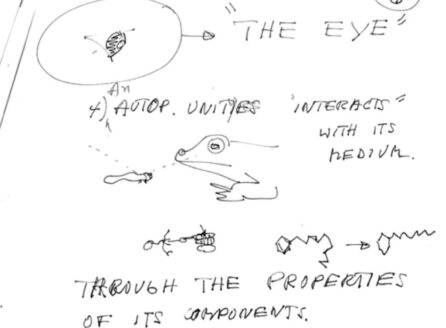 "THE EYE"
An
4) AUTOP. UNITIES "INTERACTS"
WITH ITS
MEDIUM.
THROUGH THE PROPERTIES
OF ITS COMPONENTS.